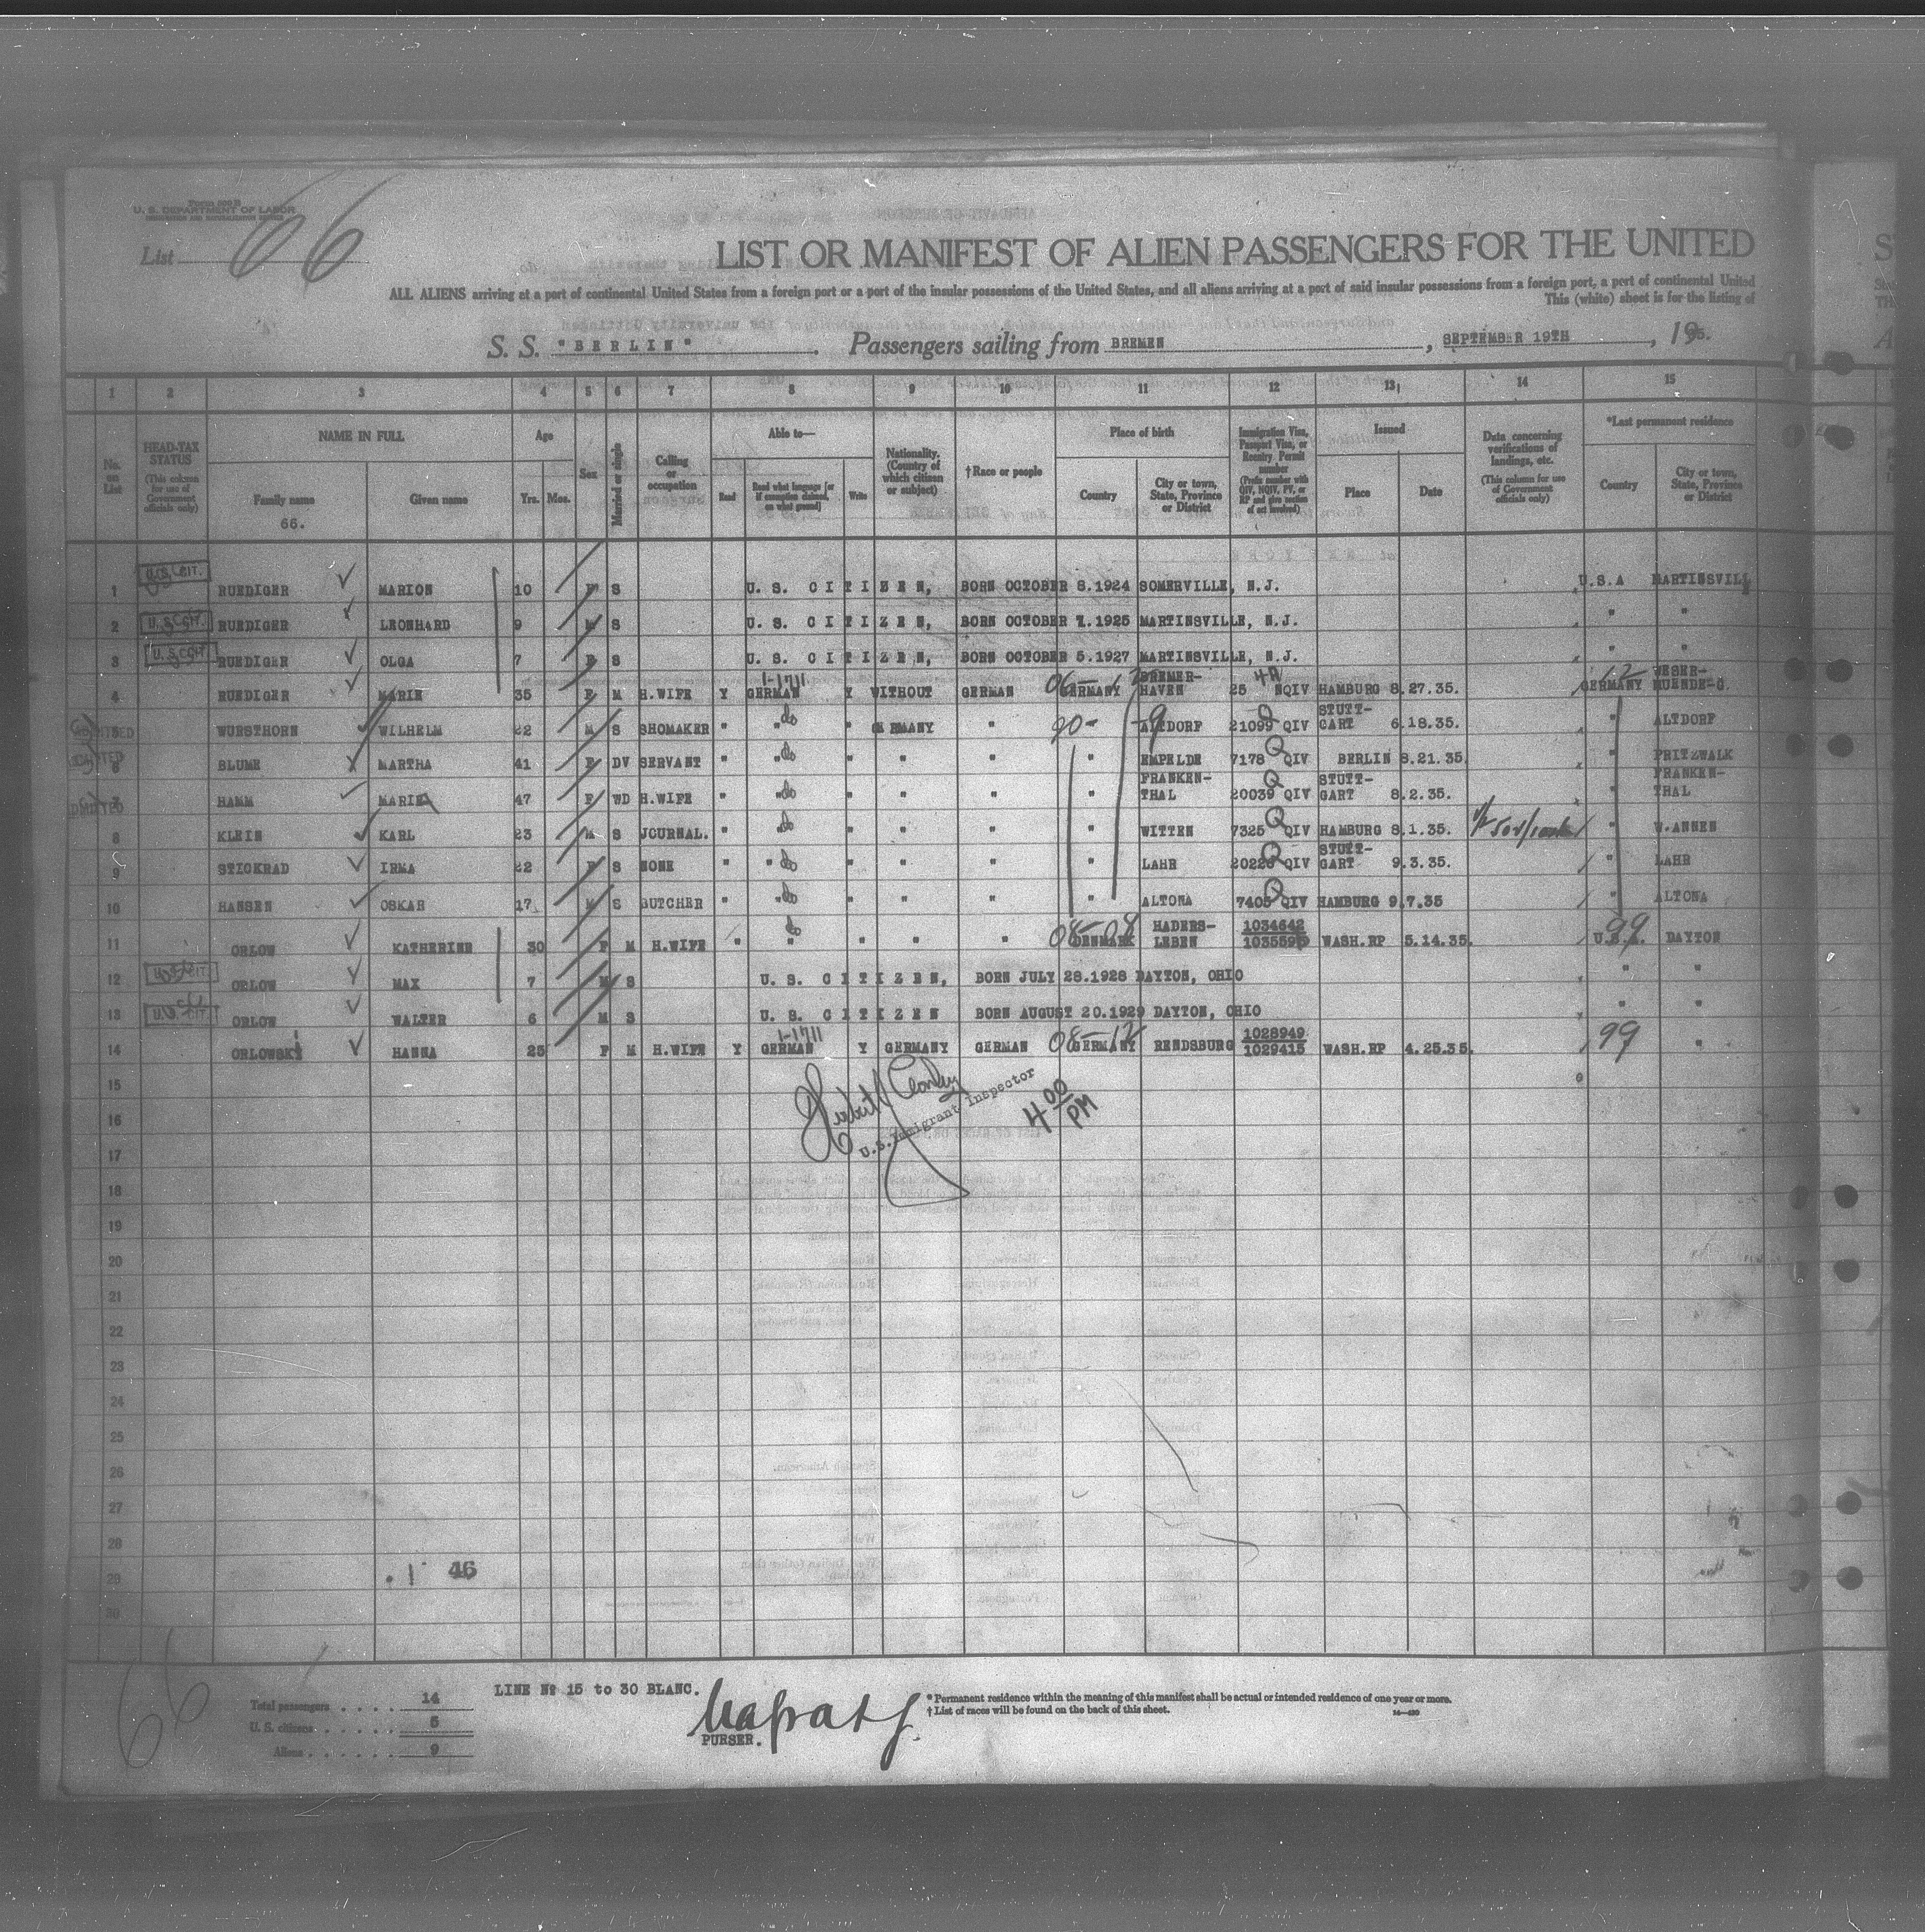 Form 500 B
U. S. DEPARTMENT OF LABOR
IMMIGRATION AND NATURALIZATION SERVICE
List 66
LIST OR MANIFEST OF ALIEN PASSENGERS FOR THE UNITED
ALL ALIENS arriving at a port of continental United States from a foreign port or a port of the insular possessions of the United States, and all aliens arriving at a port of said insular possessions from a foreign port, a port of continental United
This (white) sheet is for the listing of
S. S. "BERLIN" . Passengers sailing from BREMEN , SEPTEMBER 19TH , 1935.
1 2 3 4 5 6 7 8 9 10 11 12 13 14 15
No. on List
HEAD-TAX STATUS (This column for use of Government officials only)
NAME IN FULL
Family name 66.
Given name
Age Yrs. Mos.
Sex
Married or single
Calling or occupation
Able to—
Read
Read what language [or if exemption claimed, on what ground]
Write
Nationality. (Country of which citizen or subject)
†Race or people
Place of birth
Country
City or town, State, Province or District
Immigration Visa, Passport Visa, or Reentry Permit number (Prefix number with QIV, NQIV, PV, or RP and give section of act involved)
Issued
Place Date
Data concerning verifications of landings, etc. (This column for use of Government officials only)
*Last permanent residence
Country
City or town, State, Province or District
1 U.S. CIT. RUEDIGER MARION 10 F S U. S. CITIZEN, BORN OCTOBER 8.1924 SOMERVILLE, N.J. U.S.A MARTINSVILL
2 U.S. CIT. RUEDIGER LEONHARD 9 M S U. S. CITIZEN, BORN OCTOBER 7.1925 MARTINSVILLE, N.J. " "
3 U.S. CIT. RUEDIGER OLGA 7 F S U. S. CITIZEN, BORN OCTOBER 5.1927 MARTINSVILLE, N.J. " "
4 RUEDIGER MARIE 35 F M H.WIFE Y GERMAN 1-1711 Y WITHOUT GERMAN 06-12 GERMANY BREMER-HAVEN 25 NQIV 4A HAMBURG 8.27.35. 12 GERMANY WESER-MUENDE-G.
5 WURSTHORN WILHELM 22 M S SHOMAKER " " do " GERMANY " 20-9 " ALTDORF 21099 QIV Q STUTT-GART 6.18.35. " ALTDORF
6 BLUME MARTHA 41 F DV SERVANT " " do " " " " EMPELDE 7178 QIV Q BERLIN 8.21.35. " PRITZWALK
7 HAMM MARIE 47 F WD H.WIFE " " do " " " " FRANKEN-THAL 20039 QIV Q STUTT-GART 8.2.35. " FRANKEN-THAL
8 KLEIN KARL 23 M S JOURNAL. " " do " " " " WITTEN 7325 QIV Q HAMBURG 8.1.35. " W.ANNEN
9 STICKRAD IRMA 22 F S NONE " " do " " " " LAHR 20226 QIV Q STUTT-GART 9.3.35. " LAHR
10 HANSEN OSKAR 17 M S BUTCHER " " do " " " " ALTONA 7405 QIV Q HAMBURG 9.7.35 " ALTONA
11 ORLOW KATHERINE 30 F M H.WIFE " " do " " " 08-08 DENMARK HADERS-LEBEN 1034642 WASH.RP 5.14.35. 99 U.S.A. DAYTON
12 U.S. CIT. ORLOW MAX 7 M S U. S. CITIZEN, BORN JULY 28.1928 DAYTON, OHIO " "
13 U.S. CIT. ORLOW WALTER 6 M S U. S. CITIZEN BORN AUGUST 20.1929 DAYTON, OHIO " "
14 ORLOWSKI HANNA 25 F M H.WIFE Y GERMAN 1-1711 Y GERMANY GERMAN 08-12 GERMANY RENDSBURG 1028949 1029415 WASH.RP 4.25.35. 99 "
15
16
U.S. Immigrant Inspector
4 00 PM
17
18
19
20
21
22
23
24
25
26
27
28
29
46
30
66
Total passengers . . . . 14
U. S. citizens . . . . . 5
Aliens . . . . . . 9
LINE № 15 to 30 BLANC.
PURSER.
*Permanent residence within the meaning of this manifest shall be actual or intended residence of one year or more.
†List of races will be found on the back of this sheet.